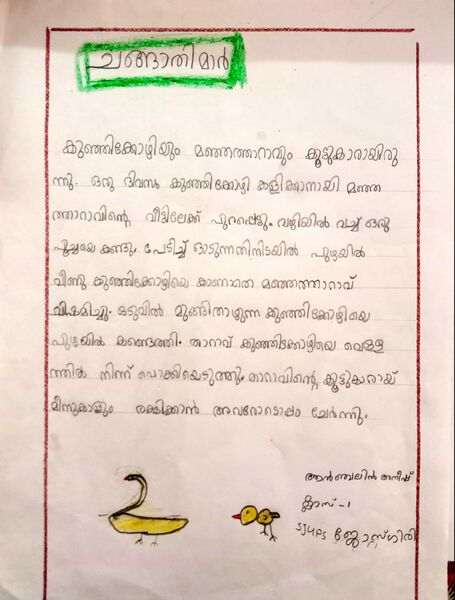 ചങ്ങാതിമാർ
കുഞ്ഞിക്കോഴിയും മഞ്ഞത്താറാവും കൂട്ടുകാരായിരു
ന്നു. ഒരു ദിവസം കുഞ്ഞിക്കോഴി കളിക്കാനായി മഞ്ഞ
ത്താറാവിന്റെ വീട്ടിലേക്ക് പുറപ്പെട്ടു. വഴിയിൽ വച്ച് ഒരു
പൂച്ചയെ കണ്ടു. പേടിച്ച് ഓടുന്നതിനിടയിൽ പുഴയിൽ
വീണു കുഞ്ഞിക്കോഴിയെ കാണാതെ മഞ്ഞത്താറാവ്
വിഷമിച്ചു. ഒടുവിൽ മുങ്ങിതാഴുന്ന കുഞ്ഞിക്കോഴിയെ
പുഴയിൽ കണ്ടെത്തി. താറാവ് കുഞ്ഞിക്കോഴിയെ വെള്ള
ത്തിൽ നിന്ന് പൊക്കിയെടുത്തു. താറാവിന്റെ കൂട്ടുകാരായ്
മീനുകളും രക്ഷിക്കാൻ അവരോടൊപ്പം ചേർന്നു.
ആൻഞ്ചലിൻ അനീഷ്
ക്ലാസ് -1
SJUPS ജോസ്ഗിരി